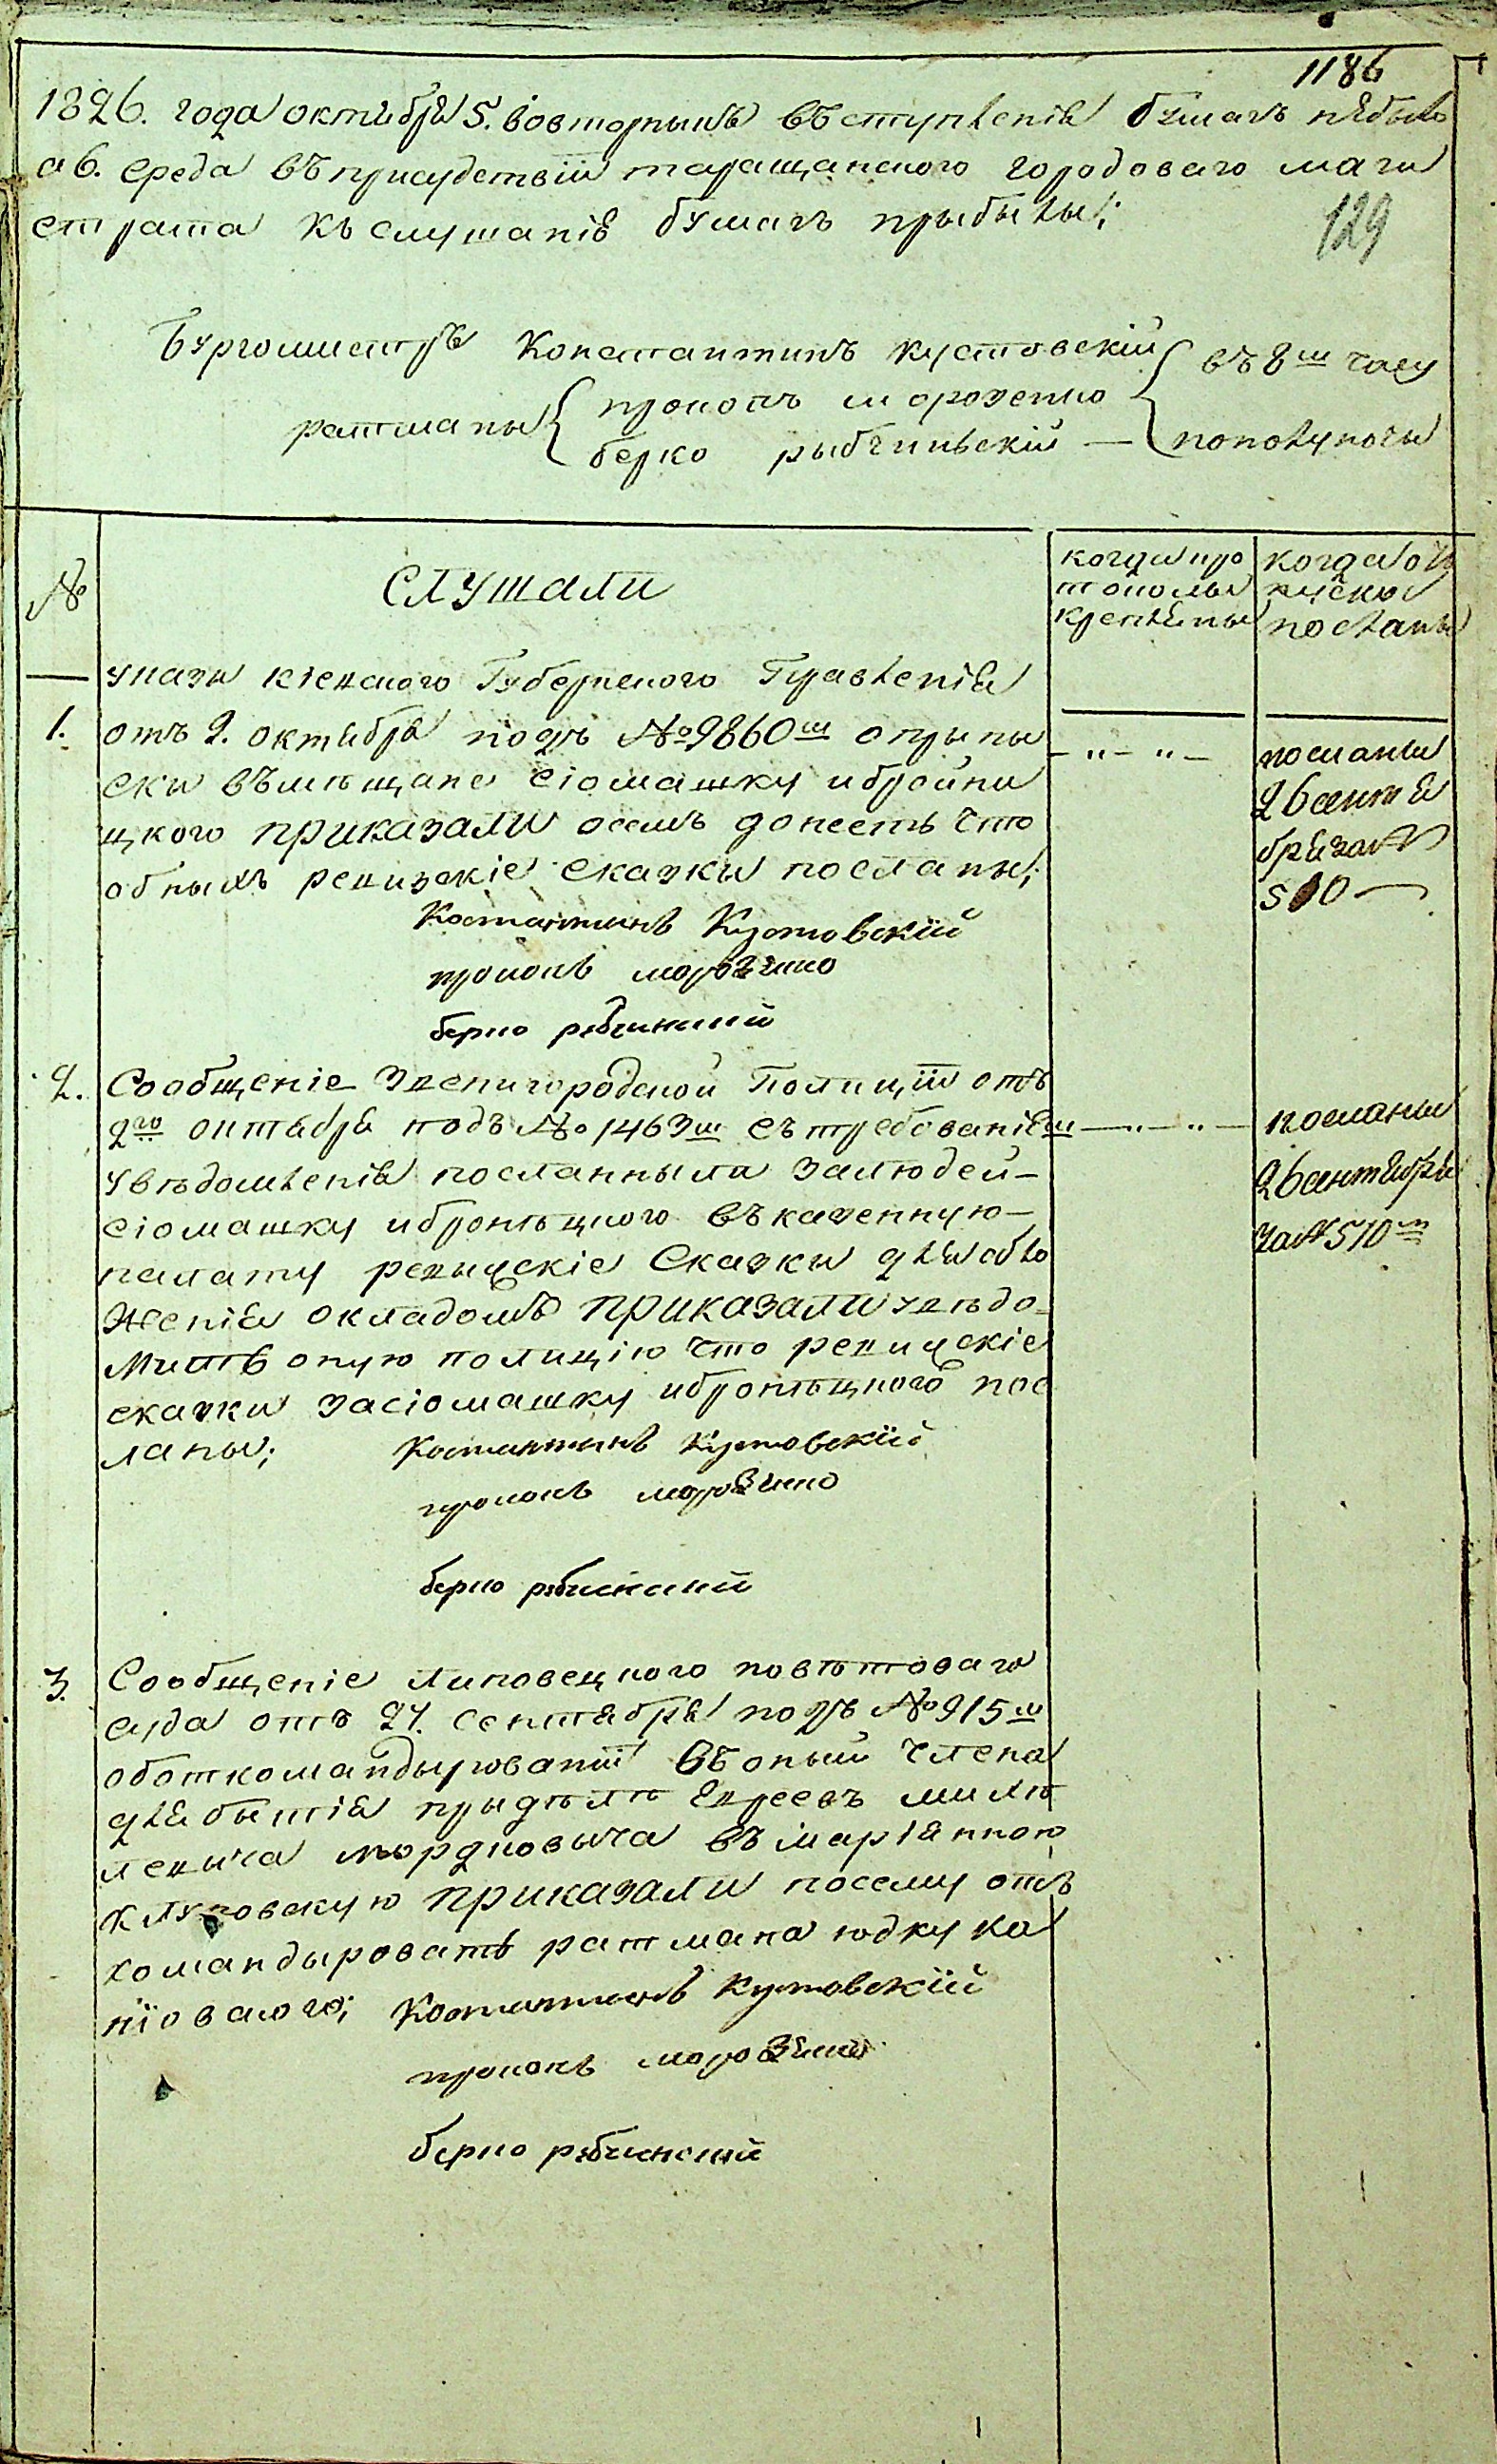 1186
1826. года октября 5. вовторныкъ въступленія бумагъ нѣбыло
а 6. среда въприсудствіи таращанского городоваго маги
страта къслушанія бумагъ прыбылы;
129
Бургомистръ Константинъ кустовскій
ратманы прокопъ морозенко
берко рыбчиньскій —
въ 8ш часу
пополуночы
№
слушали
когда про
токолы
креплены
когда от
пуски
посланы
1.
указъ кіевского Губернского Правленія
отъ 2. октября подъ № 9860ш опрыпы
ски въмѣщане сіомашку иброни
цкого приказали осемъ донесть что
обныхъ ревизскіе сказки посланы;
Костантинъ Кустовскій
прокопъ морозенко
берко рибчинский
— „ — „ —
посланы
26 сентя
бря за №
510 —
2.
Сообщеніе Звенигородской Полиціи отъ
2го октября подъ № 1463ш сътребованіем
увѣдомленія посланныла залюдей —
сіомашку иброницкого въказенную —
палату ревизскіе Сказки для обло
женія окладомъ приказали увѣдо-
мить оную полицію что ревизскіе
сказки засіомашку иброницкого пос
ланы;
Костантинъ Кустовскій
прокопъ морозенко
берко рибчинский
— „ — „ —
посланы
26 сентября
за № 510ш
3.
Сообщеніе Липовецкого повѣтоваго
суда отъ 27. сентября подъ № 915ш
оботкомандырованіи въоный члена
для бытія прыдѣлѣ Евреевъ
левыча мордковыча въ
приказали посему отъ
командыровать ратмана юдку ка
ніовского;
Костантинъ Кустовскій
прокопъ морозенко
берко рибчинский